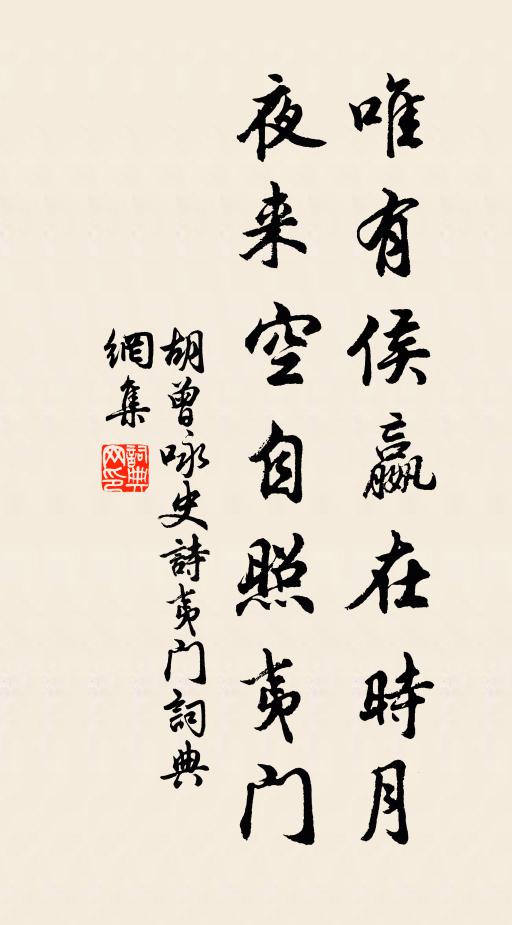 唯有侯嬴在時月
夜来空自照夷门
胡曾咏史詩夷门詞典
網集
詞典
网印